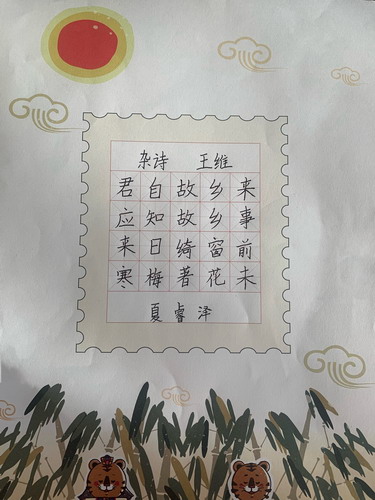 杂诗 王维
君自故乡来
应知故乡事
来日绮窗前
寒梅著花未
夏睿泽